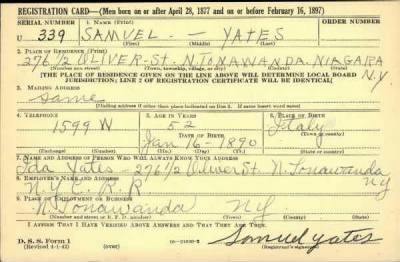 REGISTRATION CARD—(Men born on or after April 28, 1877 and on or before February 16, 1897)
SERIAL NUMBER 1. NAME (Print)
U 339 SAMUEL — YATES
(First) (Middle) (Last)
2. PLACE OF RESIDENCE (Print)
276 1/2 OLIVER-St. N.TONAWANDA. NIAGARA
(Number and street) (Town, township, village, or city) (County) (State)
[THE PLACE OF RESIDENCE GIVEN ON THE LINE ABOVE WILL DETERMINE LOCAL BOARD N.Y
JURISDICTION; LINE 2 OF REGISTRATION CERTIFICATE WILL BE IDENTICAL]
3. MAILING ADDRESS
Same
[Mailing address if other than place indicated on line 2. If same insert word same]
4. TELEPHONE 5. AGE IN YEARS 6. PLACE OF BIRTH
52 Italy
1599 W DATE OF BIRTH
Jan 16-1890
(Exchange) (Number) (Mo.) (Day) (Yr.) (State or country)
7. NAME AND ADDRESS OF PERSON WHO WILL ALWAYS KNOW YOUR ADDRESS
Ida Yates - 276 1/2 Oliver St. N. Tonawanda
8. EMPLOYER'S NAME AND ADDRESS NY
N.Y.C.R.R
9. PLACE OF EMPLOYMENT OR BUSINESS
N. Tonawanda NY.
(Number and street or R. F. D. number) (Town) (County) (State)
I AFFIRM THAT I HAVE VERIFIED ABOVE ANSWERS AND THAT THEY ARE TRUE.
D. S. S. Form 1
(Revised 4-1-42) (over) Samuel Yates
(Registrant's signature)